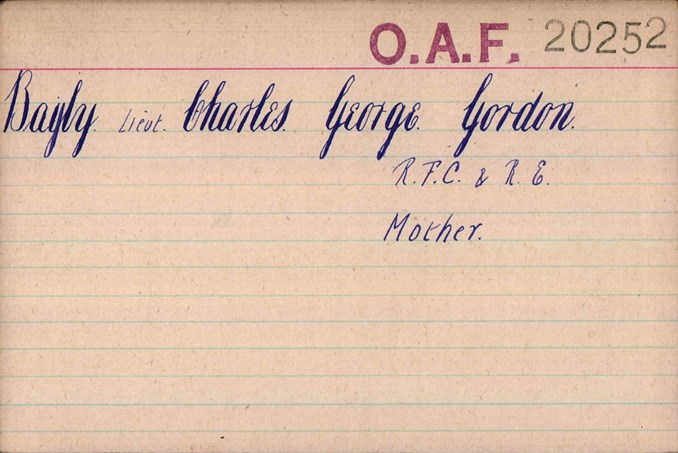 O.A.F. 20252
Bayly. Lieut. Charles. George. Gordon.
R.F.C. & R.E.
Mother.